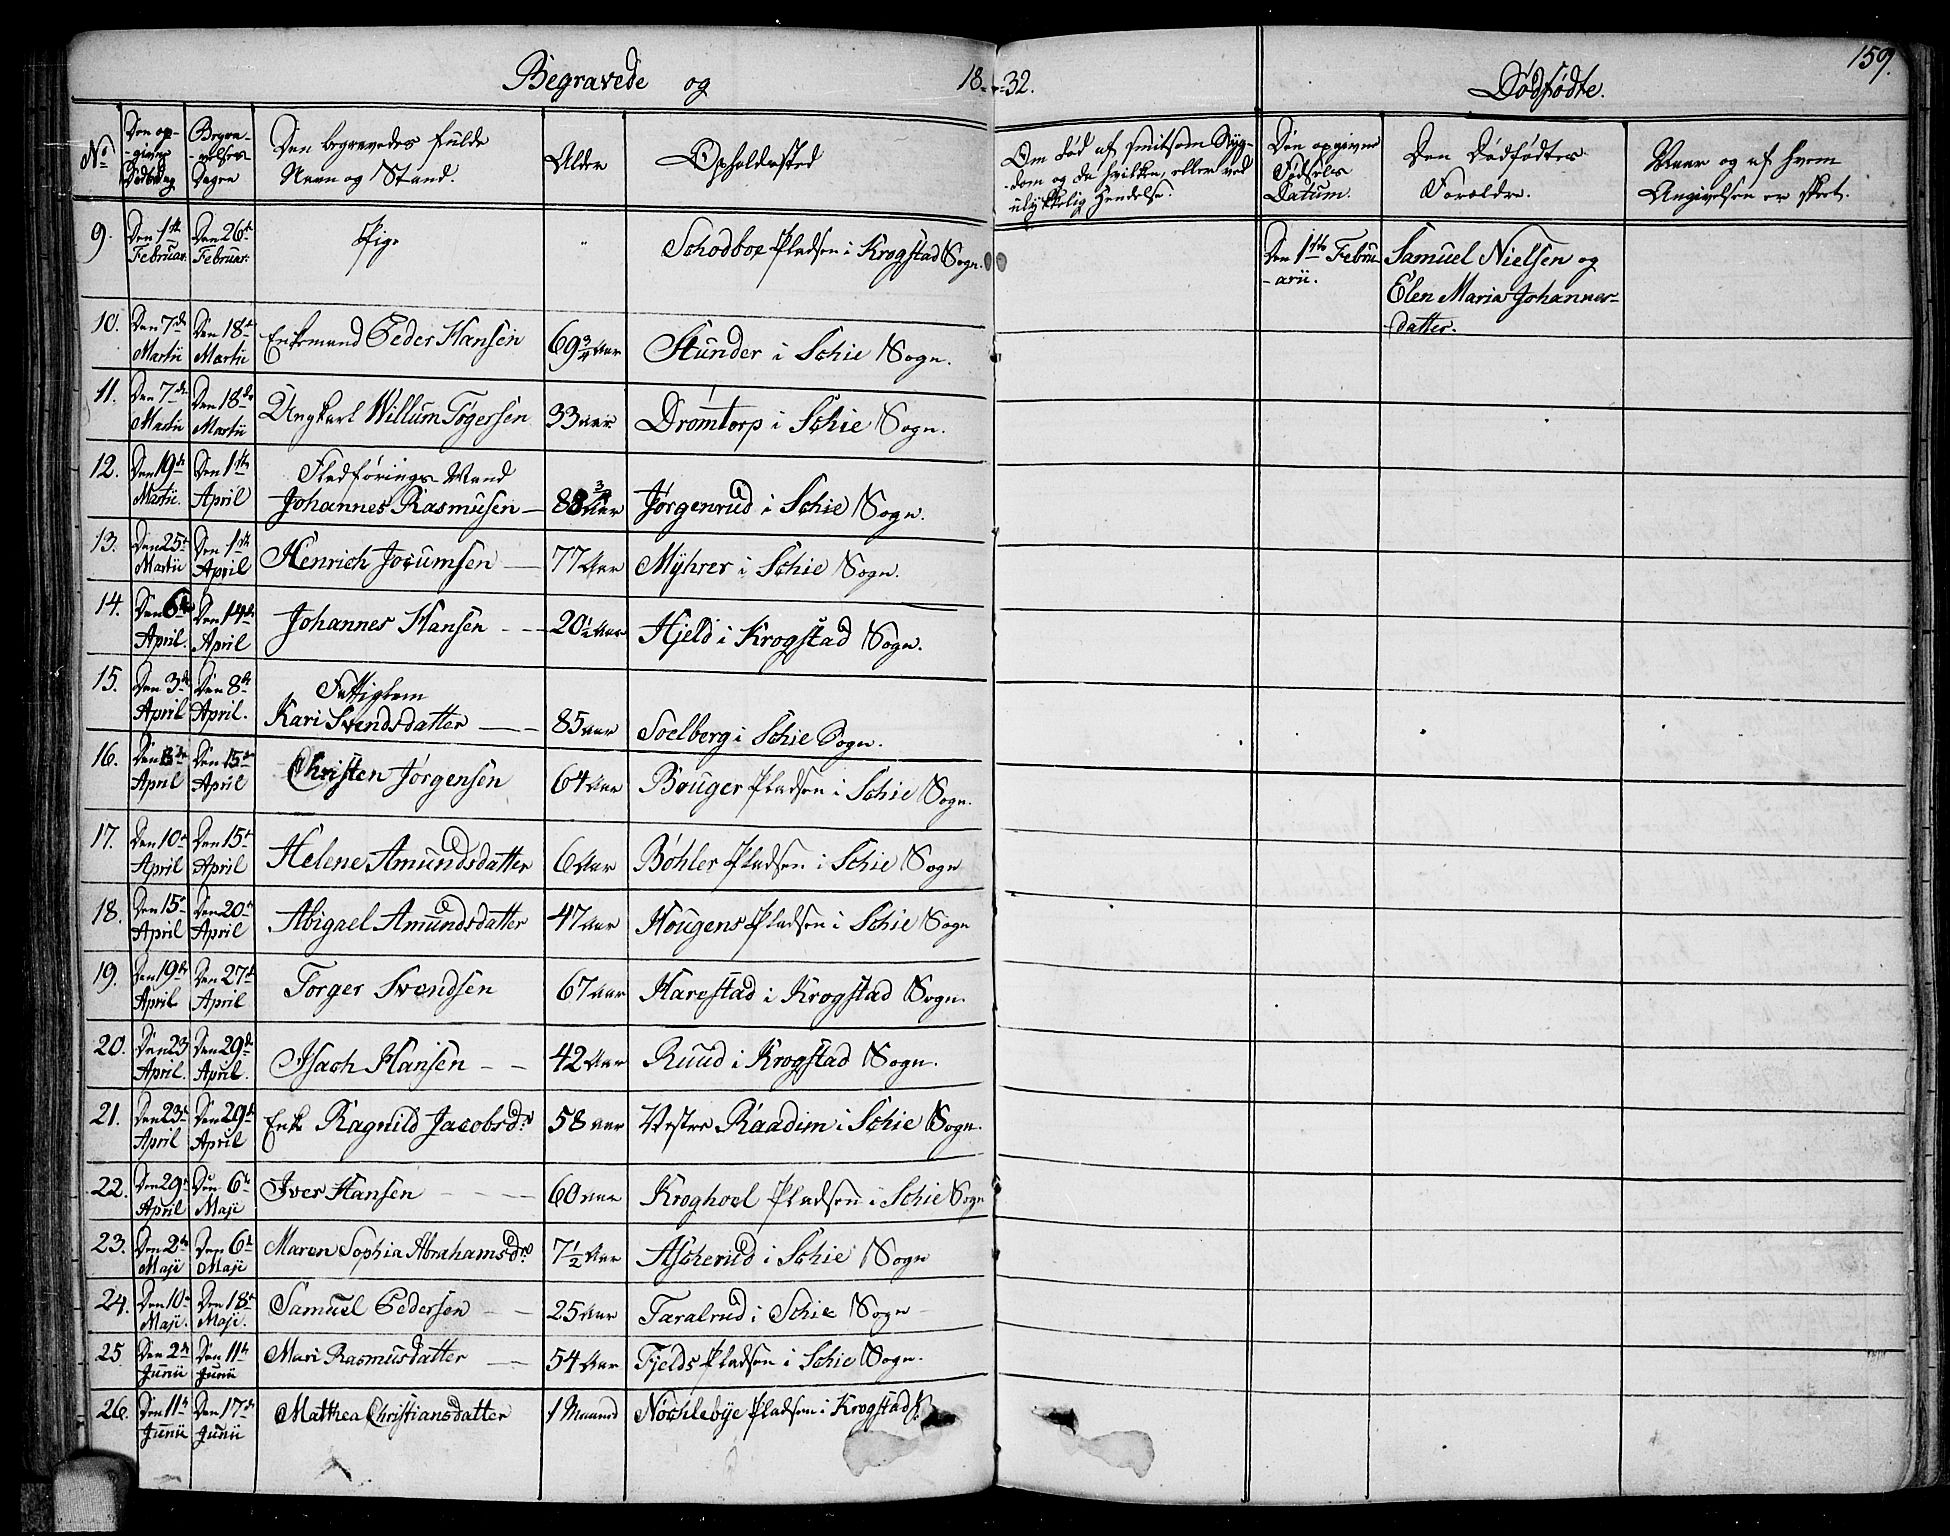 Begravede og 18-32. Dødfødte. 159.
No Den opgivne Dødsdag Begravelses Dagen Den begravedes fulde Navn og Stand. Alder Opholdssted Om død af smitsom Sygdom og da hvilken, eller ved ulykkelig Hendelse. Den opgivne Fødsels Datum. Den Dødfødtes Forældre. Naar og af hvem Angivelsen er skeet.
9. Den 1te Februar. Den 26de Februar. Pige " Schodboe Pladsen i Krogstad Sogn. Den 1te Februarii. Samuel Nielsen og Elen Maria Johannesdatter.
10. Den 7de Martii Den 18de Martii Enkemand Peder Hansen 69 3/4 Aar Stunder i Schie Sogn.
11. Den 7de Martii Den 18de Martii Ungkarl Willum Togersen 33 aar Dromtorp i Schie Sogn.
12. Den 19de Martii. Den 1te April Fledførings-Mand Johannes Rasmusen 88 3/4 Aar Jørgenrud i Schie Sogn.
13. Den 25de Martii Den 1te April Henrich Jocumsen 77 Aar Myhrer i Schie Sogn.
14. Den 6te April. Den 14de April Johannes Hansen 20 1/2 Aar Hjeld i Krogstad Sogn.
15. Den 3de April Den 8de April. Fattiglem Kari Svendsdatter 85 aar Soelberg i Schie Sogn.
16. Den 8de April Den 15de April Christen Jørgensen 64 Aar Bøuger Pladsen i Schie Sogn.
17. Den 10de April Den 15de April Helene Amundsdatter 6 Aar Bøhler Pladsen i Schie Sogn
18. Den 15de April Den 20de April Abigael Amundsdatter 47 Aar Hougens Pladsen i Schie Sogn
19. Den 19de April Den 27de April Torger Svendsen 67 Aar Harestad i Krogstad Sogn.
20. Den 23 April. Den 29de April. Isach Hansen 42 Aar Ruud i Krogstad Sogn.
21. Den 23de April Den 29de April Enke Ragnild Jacobsdr 58 aar Vestre Raadim i Schie Sogn.
22. Den 29de April Den 6te Maji Iver Hansen 60 aar Kroghoel Pladsen i Schie Sogn
23. Den 2de Maji Den 6te Maji Maren Sophia Abrahamsdr. 7 1/2 Aar Ascherud i Schie Sogn
24. Den 10de Maji. Den 18de Maji. Samuel Pedersen 25 Aar Taralrud i Schie Sogn
25 Den 2de Junii Den 11te Junii Mari Rasmusdatter 54 Aar Fjelds Pladsen i Schie Sogn.
26. Den 11te Junii Den 17de Junii Mathea Christiansdatter 1 Maaned Nøchlebye Pladsen i Krogstad S.